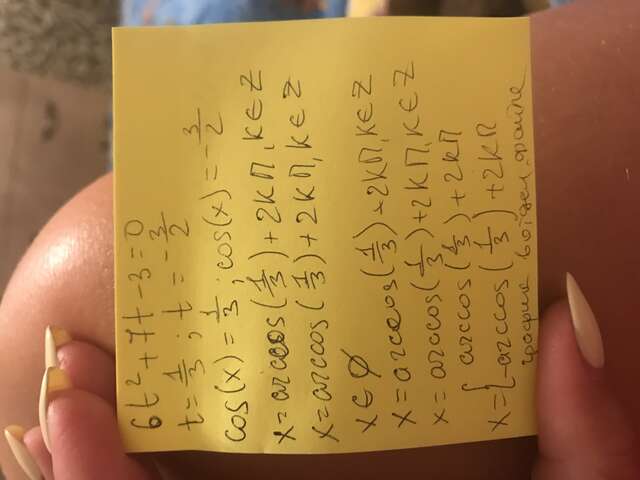 6t² + 7t - 3 = 0
t = 1/3 ; t = -3/2
cos(x) = 1/3 ; cos(x) = -3/2
x = arccos(1/3) + 2kπ, k∈Z
x = arccos(1/3) + 2kπ, k∈Z
x ∈ ∅
x = arccos(1/3) + 2kπ, k∈Z
x = arccos(1/3) + 2kπ, k∈Z
arccos(1/3) + 2kπ
x = { -arccos(1/3) + 2kπ
график